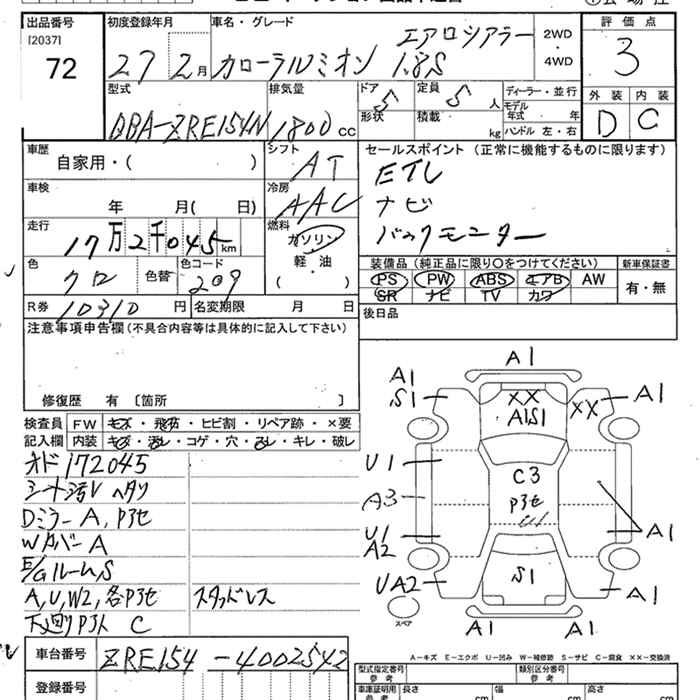 出品番号 初度登録年月 車名・グレード 評価点
[2037] エアロツアラー 2WD
72 27 2月 カローラルミオン 1.8S ・ 3
4WD
型式 排気量 ドア 5 定員 5 人 ディーラー・並行 外装 内装
モデル年式 年
DBA-ZRE154N 1800cc 形状 積載 kg ハンドル 左・右 D C
車歴 自家用・( ) シフト AT セールスポイント (正常に機能するものに限ります)
車検 年 月( 日) 冷房 AAC ETC
ナビ
走行 17万2千045km 燃料 ガソリン バックモニター
軽・油
( )
色 クロ 色替 色コード 209 装備品 (純正品に限り○をつけてください) 新車保証書
PS PW ABS エアB AW 有・無
R券 10310円 名変期限 月 日 SR ナビ TV カワ
注意事項申告欄 (不具合内容等は具体的に記入して下さい) 後日品
修復歴 有 [箇所 ]
検査員 FW キズ・飛石・ヒビ割・リペア跡・×要
記入欄 内装 キズ・汚レ・コゲ・穴・スレ・キレ・破レ
オド172045
シート汚レ ヘタリ
Dミラー A, P3セ
Wカバー A
E/GルームS
A, U, W2, 各P3セ スタッドレス
下廻りP3ト C
A1
A1
S1
XX
A1S1
XX
A1
U1
C3
P3セ
A3
U1
A2
A1
S1
UA2
A1
スペア
A1 A1
A－キズ E－エクボ U－凹み W－補修跡 S－サビ C－腐食 ××－交換済
車台番号 ZRE154-4002542
型式指定番号 参考 類別区分番号 参考
登録番号 車庫証明用 参考 長さ cm 幅 cm 高さ cm